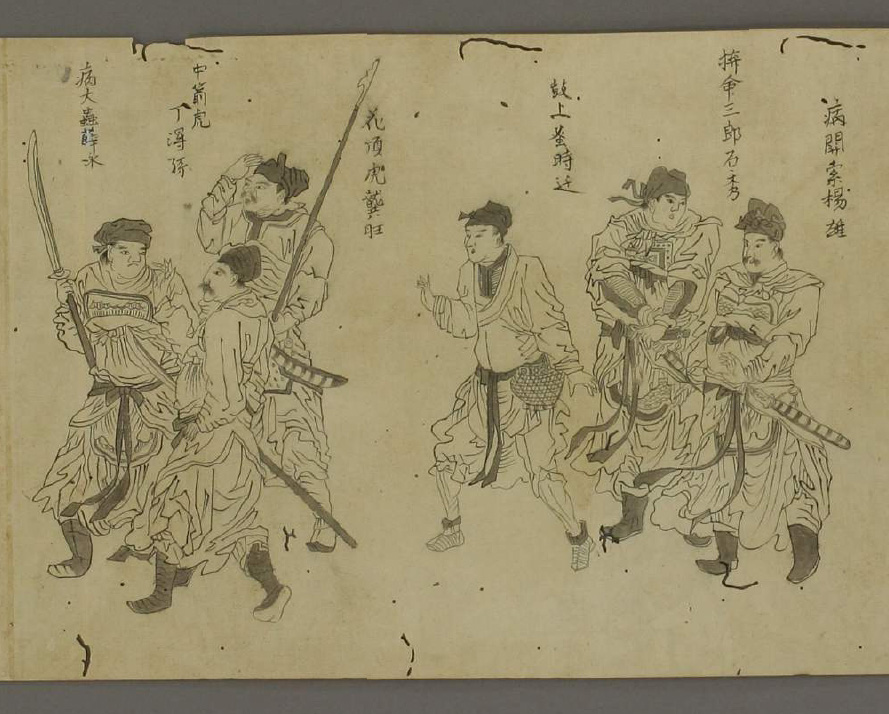 病関索楊雄
拚命三郎石秀
鼓上蚤時迁
花項虎龔旺
中箭虎
丁淂孫
病大蟲薛永